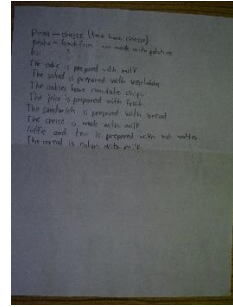 pizza — cheese (tacos have cheese)
potato = french fries are made with potatoes
The cake is prepared with milk
The salad is prepared with vegetables
The cookies have chocolate chips
The juice is prepared with fruit
The sandwich is prepared with bread
The cereal is made with milk
Coffe and tea is prepared with hot water
The cereal is eaten with milk